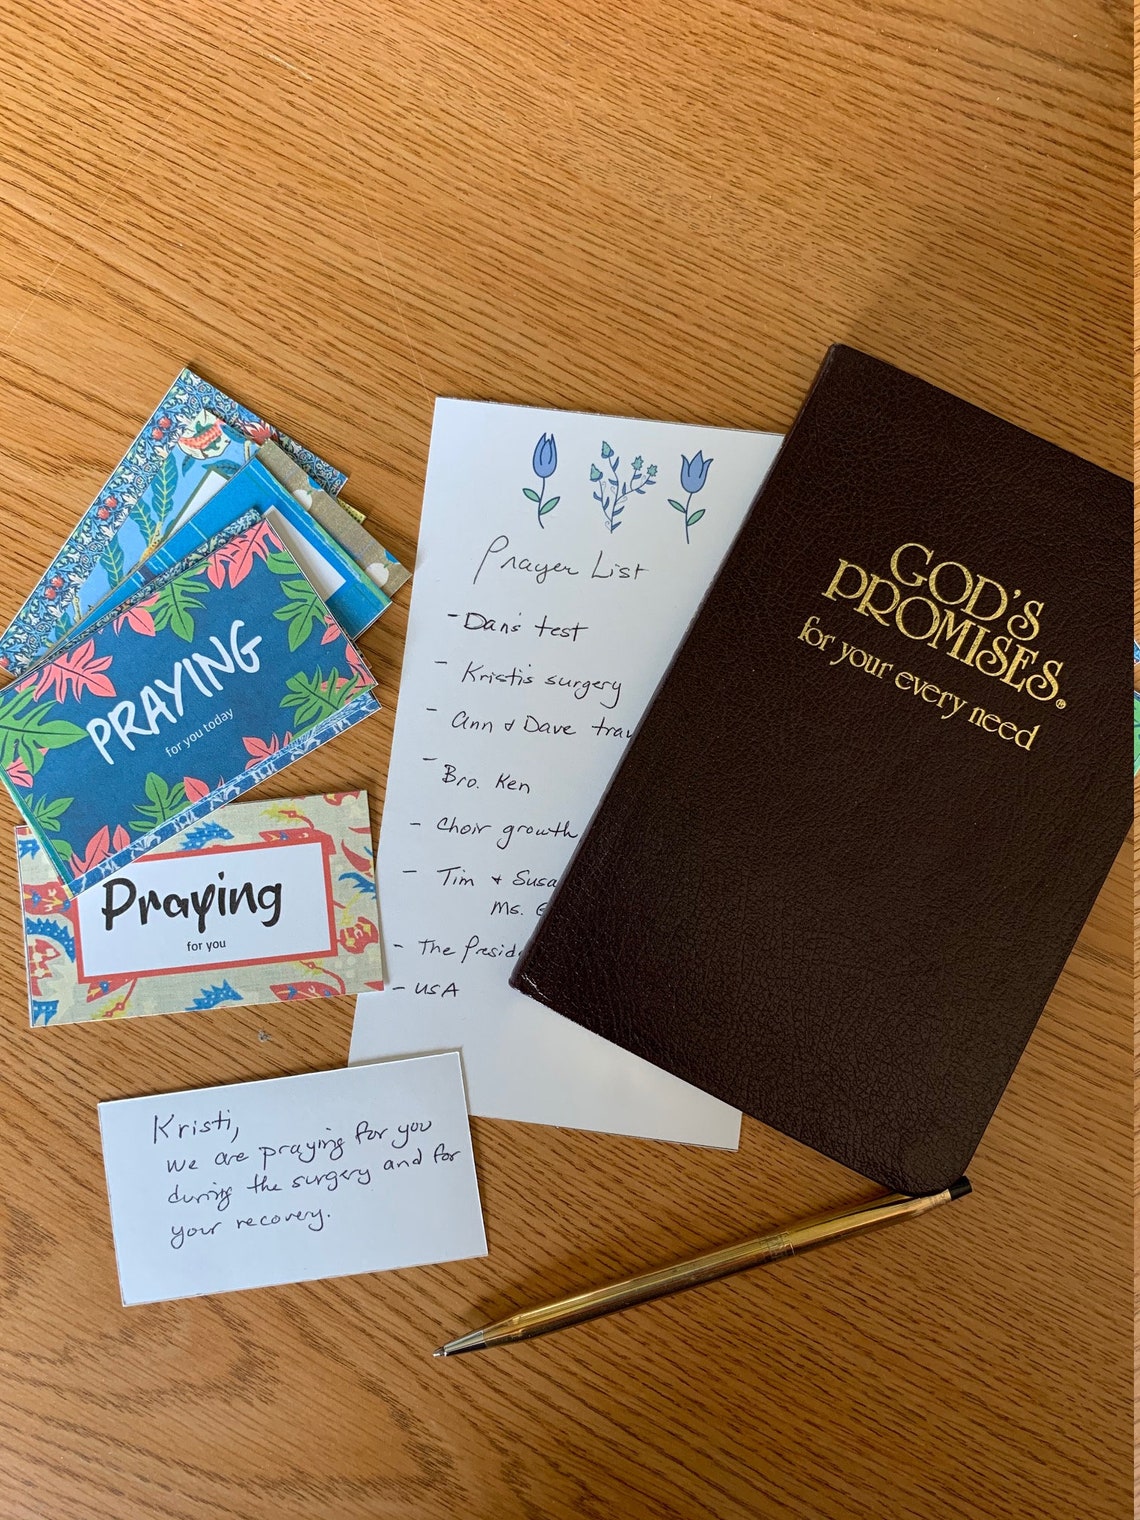 PRAYING
for you today
Praying
for you
Kristi,
we are praying for you
during the surgery and for
your recovery.
Prayer List
- Dan's test
- Kristi's surgery
- Ann & Dave
- Bro. Ken
- Choir growth
- Tim +
Ms.
- The
- USA
GOD'S
PROMISES®
for your every need